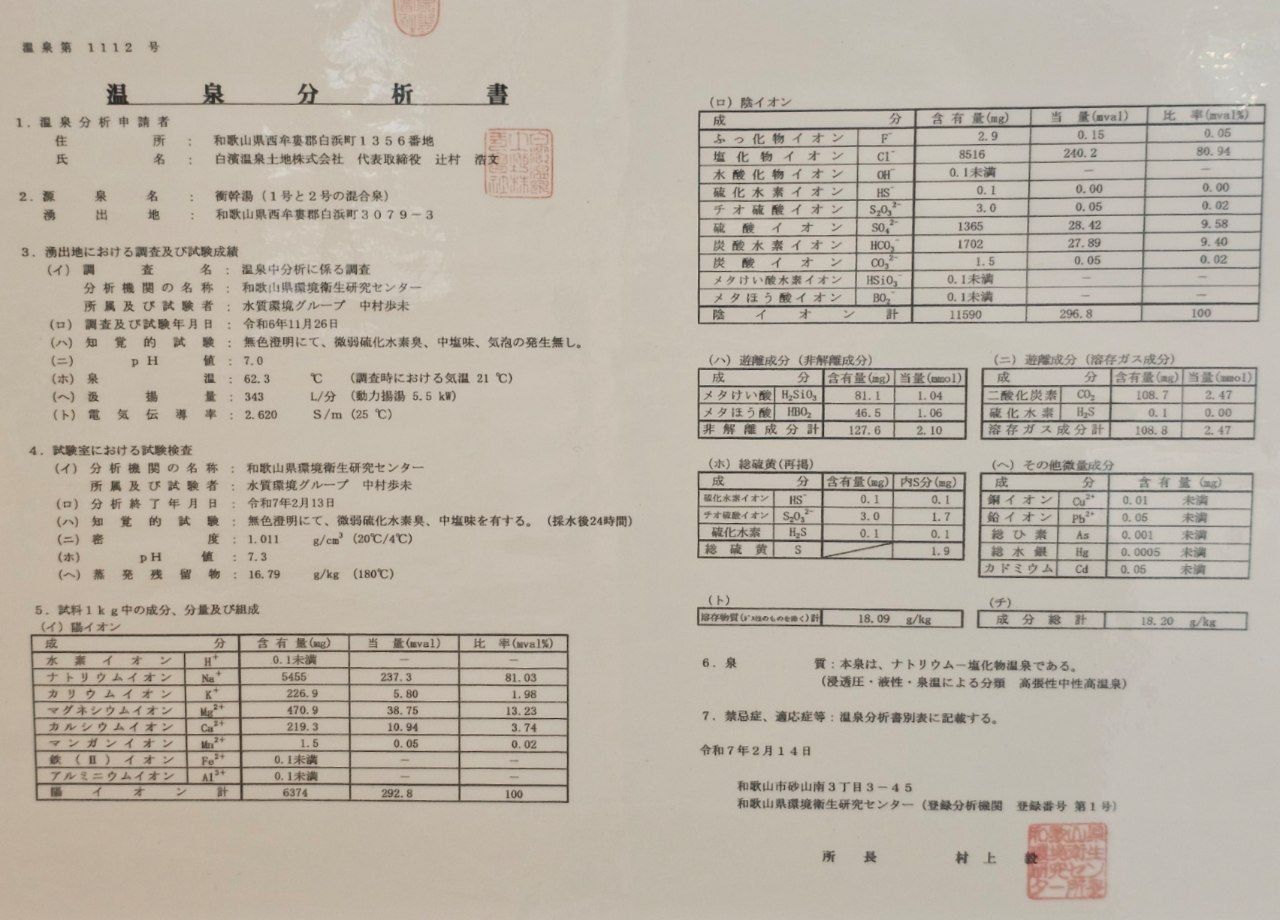 温泉第 1112 号
温泉分析書
1．温泉分析申請者
住所 ： 和歌山県西牟婁郡白浜町1356番地
氏名 ： 白濱温泉土地株式会社 代表取締役 辻村 浩文
2．源泉名 ： 衝幹湯（1号と2号の混合泉）
湧出地 ： 和歌山県西牟婁郡白浜町3079－3
3．湧出地における調査及び試験成績
（イ）調査名 ： 温泉中分析に係る調査
分析機関の名称 ： 和歌山県環境衛生研究センター
所属及び試験者 ： 水質環境グループ 中村歩未
（ロ）調査及び試験年月日 ： 令和6年11月26日
（ハ）知覚的試験 ： 無色澄明にて、微弱硫化水素臭、中塩味、気泡の発生無し。
（ニ）pH値 ： 7.0
（ホ）泉温 ： 62.3 ℃ （調査時における気温 21 ℃）
（ヘ）汲揚量 ： 343 L/分 （動力揚湯 5.5 kW）
（ト）電気伝導率 ： 2.620 S/m（25 ℃）
4．試験室における試験検査
（イ）分析機関の名称 ： 和歌山県環境衛生研究センター
所属及び試験者 ： 水質環境グループ 中村歩未
（ロ）分析終了年月日 ： 令和7年2月13日
（ハ）知覚的試験 ： 無色澄明にて、微弱硫化水素臭、中塩味を有する。（採水後24時間）
（ニ）密度 ： 1.011 g/cm³（20℃/4℃）
（ホ）pH値 ： 7.3
（ヘ）蒸発残留物 ： 16.79 g/kg （180℃）
5．試料1kg中の成分、分量及び組成
（イ）陽イオン
成分 含有量(mg) 当量(mval) 比率(mval%)
水素イオン H⁺ 0.1未満 － －
ナトリウムイオン Na⁺ 5455 237.3 81.03
カリウムイオン K⁺ 226.9 5.80 1.98
マグネシウムイオン Mg²⁺ 470.9 38.75 13.23
カルシウムイオン Ca²⁺ 219.3 10.94 3.74
マンガンイオン Mn²⁺ 1.5 0.05 0.02
鉄（Ⅱ）イオン Fe²⁺ 0.1未満 － －
アルミニウムイオン Al³⁺ 0.1未満 － －
陽イオン計 6374 292.8 100
（ロ）陰イオン
成分 含有量(mg) 当量(mval) 比率(mval%)
ふっ化物イオン F⁻ 2.9 0.15 0.05
塩化物イオン Cl⁻ 8516 240.2 80.94
水酸化物イオン OH⁻ 0.1未満 － －
硫化水素イオン HS⁻ 0.1 0.00 0.00
チオ硫酸イオン S₂O₃²⁻ 3.0 0.05 0.02
硫酸イオン SO₄²⁻ 1365 28.42 9.58
炭酸水素イオン HCO₃⁻ 1702 27.89 9.40
炭酸イオン CO₃²⁻ 1.5 0.05 0.02
メタけい酸水素イオン HSiO₃⁻ 0.1未満 － －
メタほう酸イオン BO₂⁻ 0.1未満 － －
陰イオン計 11590 296.8 100
（ハ）遊離成分（非解離成分）
成分 含有量(mg) 当量(mmol)
メタけい酸 H₂SiO₃ 81.1 1.04
メタほう酸 HBO₂ 46.5 1.06
非解離成分計 127.6 2.10
（ニ）遊離成分（溶存ガス成分）
成分 含有量(mg) 当量(mmol)
二酸化炭素 CO₂ 108.7 2.47
硫化水素 H₂S 0.1 0.00
溶存ガス成分計 108.8 2.47
（ホ）総硫黄(再掲)
成分 含有量(mg) 内S分(mg)
硫化水素イオン HS⁻ 0.1 0.1
チオ硫酸イオン S₂O₃²⁻ 3.0 1.7
硫化水素 H₂S 0.1 0.1
総硫黄 S 1.9
（ヘ）その他微量成分
成分 含有量(mg)
銅イオン Cu²⁺ 0.01 未満
鉛イオン Pb²⁺ 0.05 未満
総ひ素 As 0.001 未満
総水銀 Hg 0.0005 未満
カドミウム Cd 0.05 未満
（ト）
溶存物質(ｶﾞｽ性のものを除く)計 18.09 g/kg
（チ）
成分総計 18.20 g/kg
6．泉質：本泉は、ナトリウム－塩化物温泉である。
（浸透圧・液性・泉温による分類 高張性中性高温泉）
7．禁忌症、適応症等：温泉分析書別表に記載する。
令和7年2月14日
和歌山市砂山南3丁目3－45
和歌山県環境衛生研究センター（登録分析機関 登録番号 第1号）
所長 村上 毅